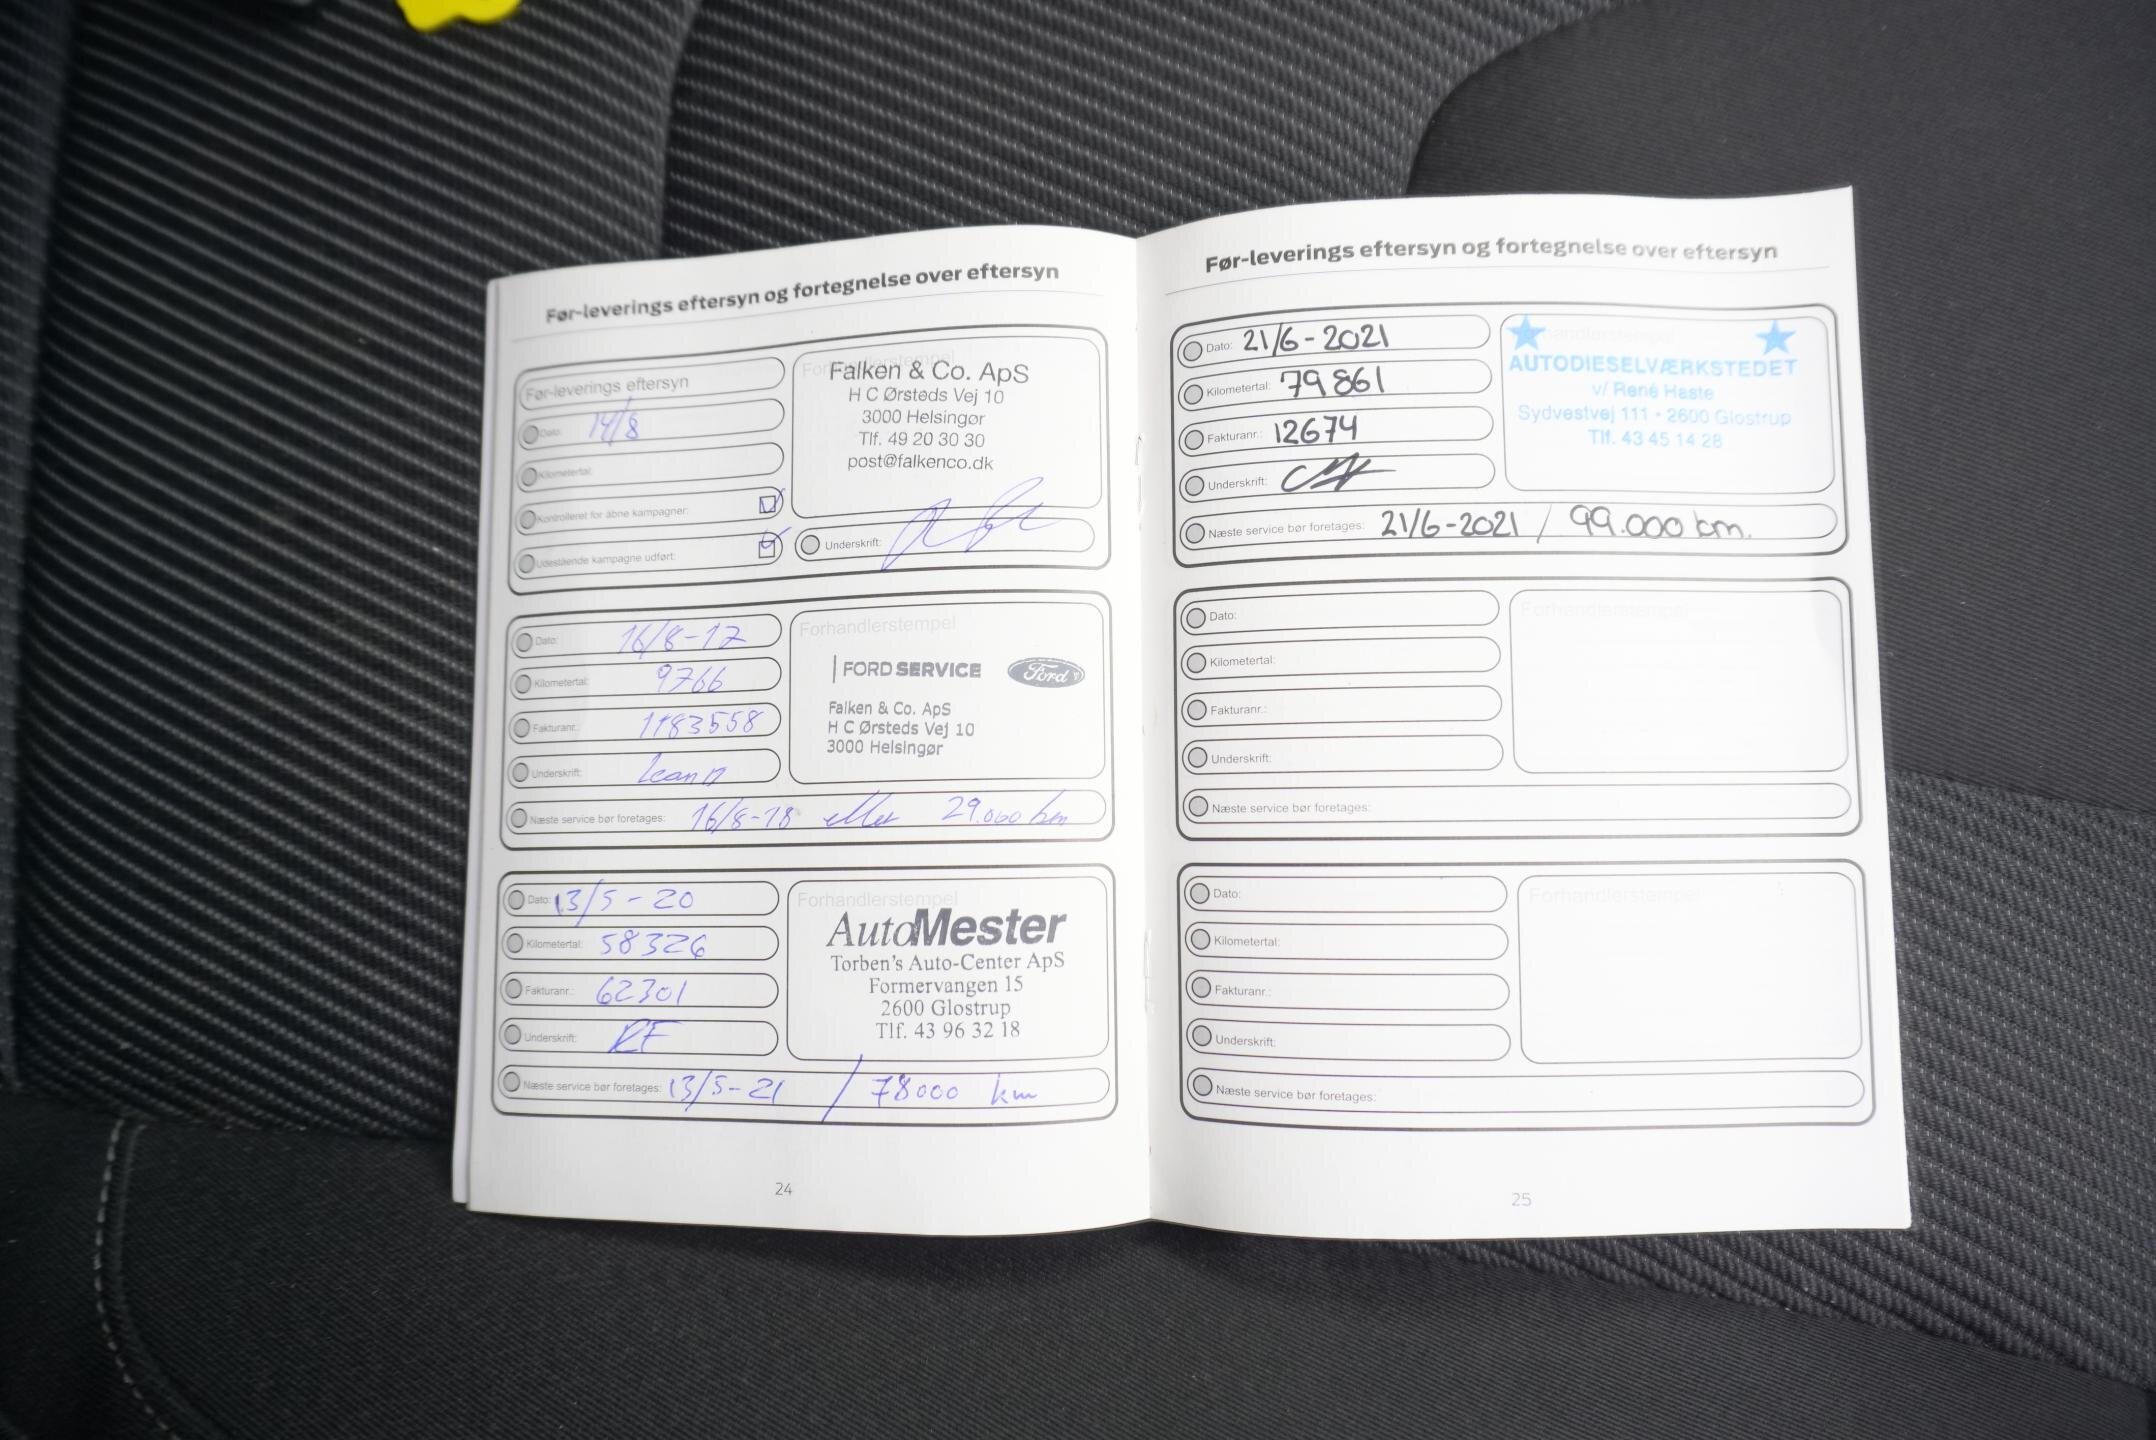 Før-leverings eftersyn og fortegnelse over eftersyn
Før-leverings eftersyn
Dato: 14/8
Kilometertal:
Kontrolleret for åbne kampagner:
Udestående kampagne udført:
Forhandlerstempel
Falken & Co. ApS
H C Ørsteds Vej 10
3000 Helsingør
Tlf. 49 20 30 30
post@falkenco.dk
Underskrift:
Dato: 16/8-17
Kilometertal: 9766
Fakturanr.: 1183558
Underskrift:
Forhandlerstempel
FORD SERVICE
Ford
Falken & Co. ApS
H C Ørsteds Vej 10
3000 Helsingør
Næste service bør foretages: 16/8-18 eller 29.000 km
Dato: 13/5-20
Kilometertal: 58326
Fakturanr.: 62301
Underskrift:
Forhandlerstempel
AutoMester
Torben's Auto-Center ApS
Formervangen 15
2600 Glostrup
Tlf. 43 96 32 18
Næste service bør foretages: 13/5-21 / 78000 km
24
Før-leverings eftersyn og fortegnelse over eftersyn
Dato: 21/6-2021
Kilometertal: 79861
Fakturanr.: 12674
Underskrift:
Forhandlerstempel
AUTODIESELVÆRKSTEDET
v/ René Haste
Sydvestvej 111 • 2600 Glostrup
Tlf. 43 45 14 28
Næste service bør foretages: 21/6-2021 / 99.000 km.
Dato:
Kilometertal:
Fakturanr.:
Underskrift:
Forhandlerstempel
Næste service bør foretages:
Dato:
Kilometertal:
Fakturanr.:
Underskrift:
Forhandlerstempel
Næste service bør foretages:
25